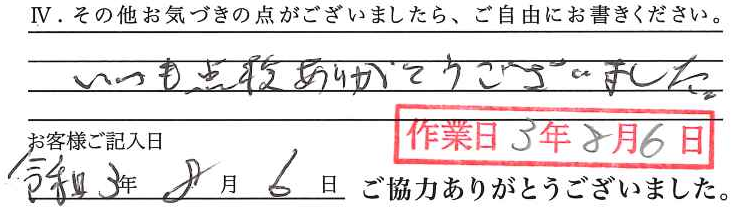 Ⅳ．その他お気づきの点がございましたら、ご自由にお書きください。
いつも点検ありがとうございました。
お客様ご記入日
作業日 3年 8月 6日
令和 3年 8月 6日
ご協力ありがとうございました。